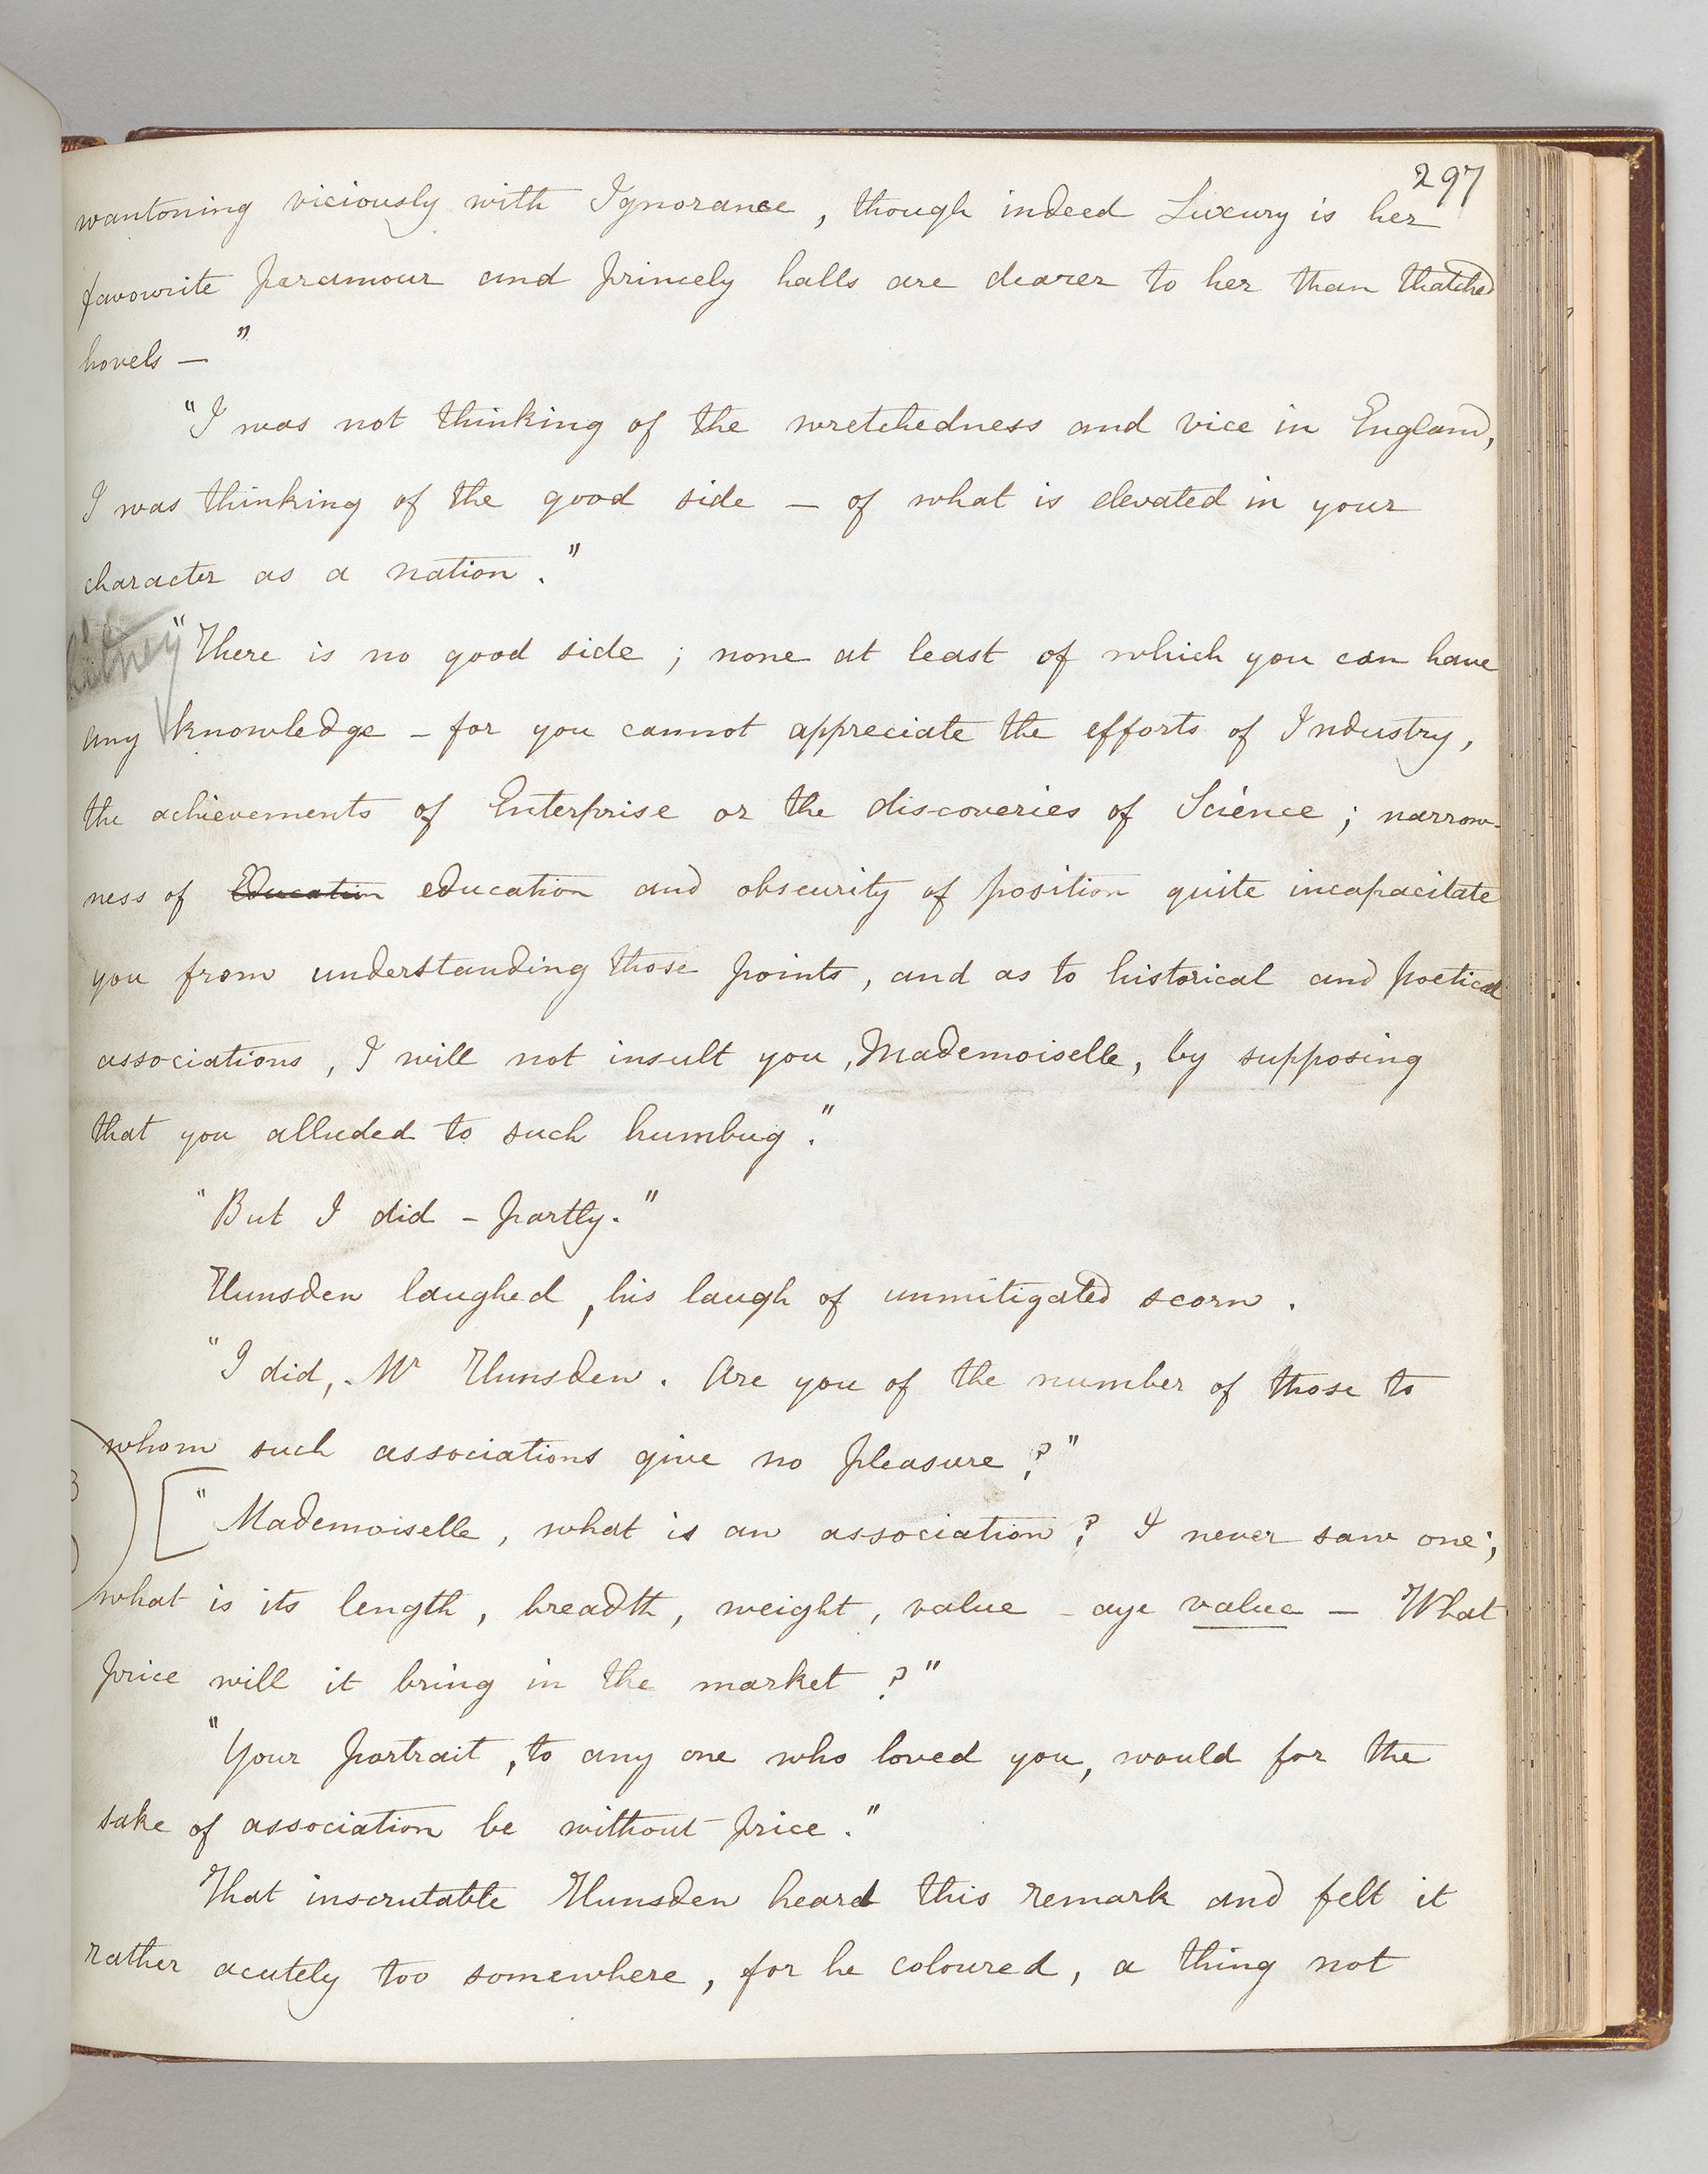 297
wantoning viciously with Ignorance, though indeed Luxury is her
favourite paramour and princely halls are dearer to her than thatched
hovels — "
"I was not thinking of the wretchedness and vice in England,
I was thinking of the good side — of what is elevated in your
character as a nation."
"There is no good side; none at least of which you can have
any knowledge — for you cannot appreciate the efforts of Industry,
the achievements of Enterprise or the discoveries of Science; narrow-
ness of Education education and obscurity of position quite incapacitate
you from understanding those points, and as to historical and poetical
associations, I will not insult you, Mademoiselle, by supposing
that you alluded to such humbug."
"But I did — partly."
Hunsden laughed, his laugh of unmitigated scorn.
"I did, Mr Hunsden. Are you of the number of those to
whom such associations give no pleasure?"
"Mademoiselle, what is an association? I never saw one;
what is its length, breadth, weight, value — aye value — What
price will it bring in the market?"
"Your portrait, to any one who loved you, would for the
sake of association be without price."
That inscrutable Hunsden heard this remark and felt it
rather acutely too somewhere, for he coloured, a thing not